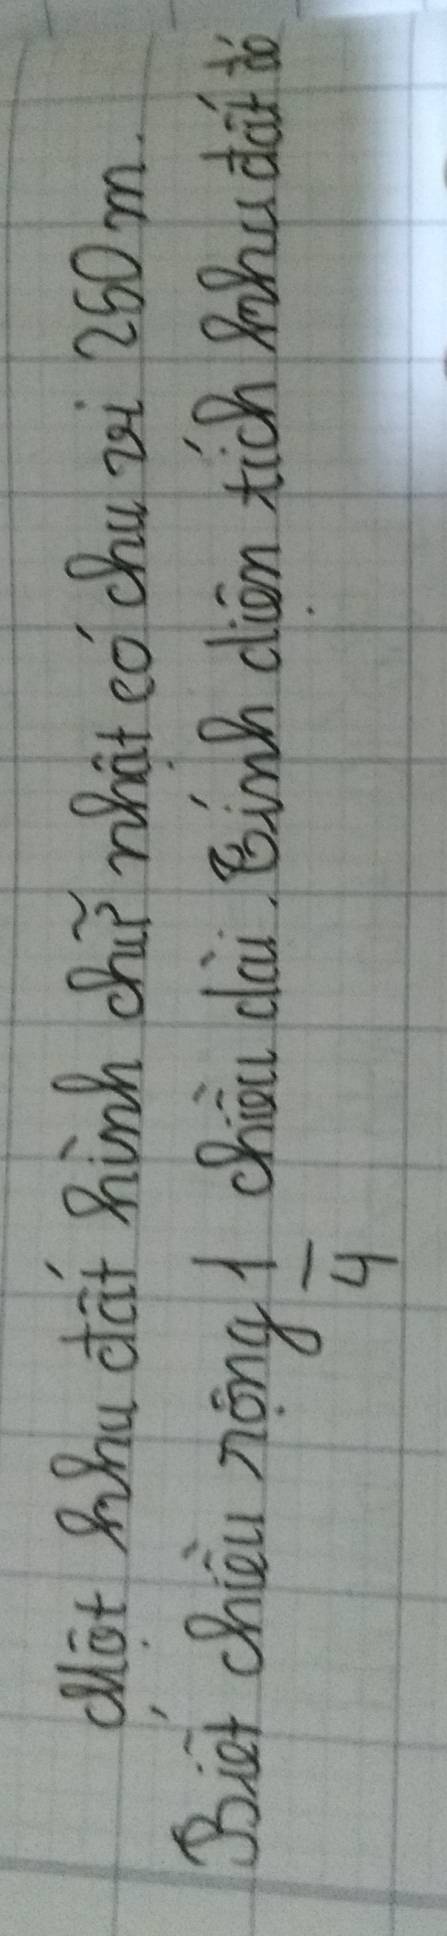 Một khu đất hình chữ nhật có chu vi 250 m.
Biết chiều rộng 1/4 chiều dài. Tính diện tích khu đất đó